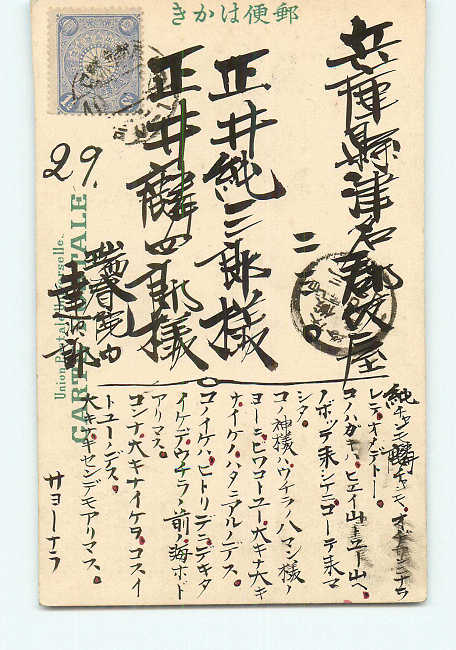 きかは便郵
兵庫縣津名郡仮屋
正井純三郎様
正井 四郎様
29.
CARTE POSTALE
Union Postale Universelle.
純チャンモ チャンモ、オトナシニナラ
レテオメデトー。
コノハガキハヒエイ山ト云フ山ヘ
ノボッテ来シナニコーテ来マ
シタ。
コノ神様ハウチラノ八マン様ノ
ヨーニビワコトユー大キナ大キ
ナイケノハタニアルノデス
コノイケハヒトリデニデキタ
イケデウチラノ前ノ海ホド
アリマス。
コンナ大キナイケヲコスイ
トユーノデス。
大キナキセンデモアリマス。
サヨーナラ